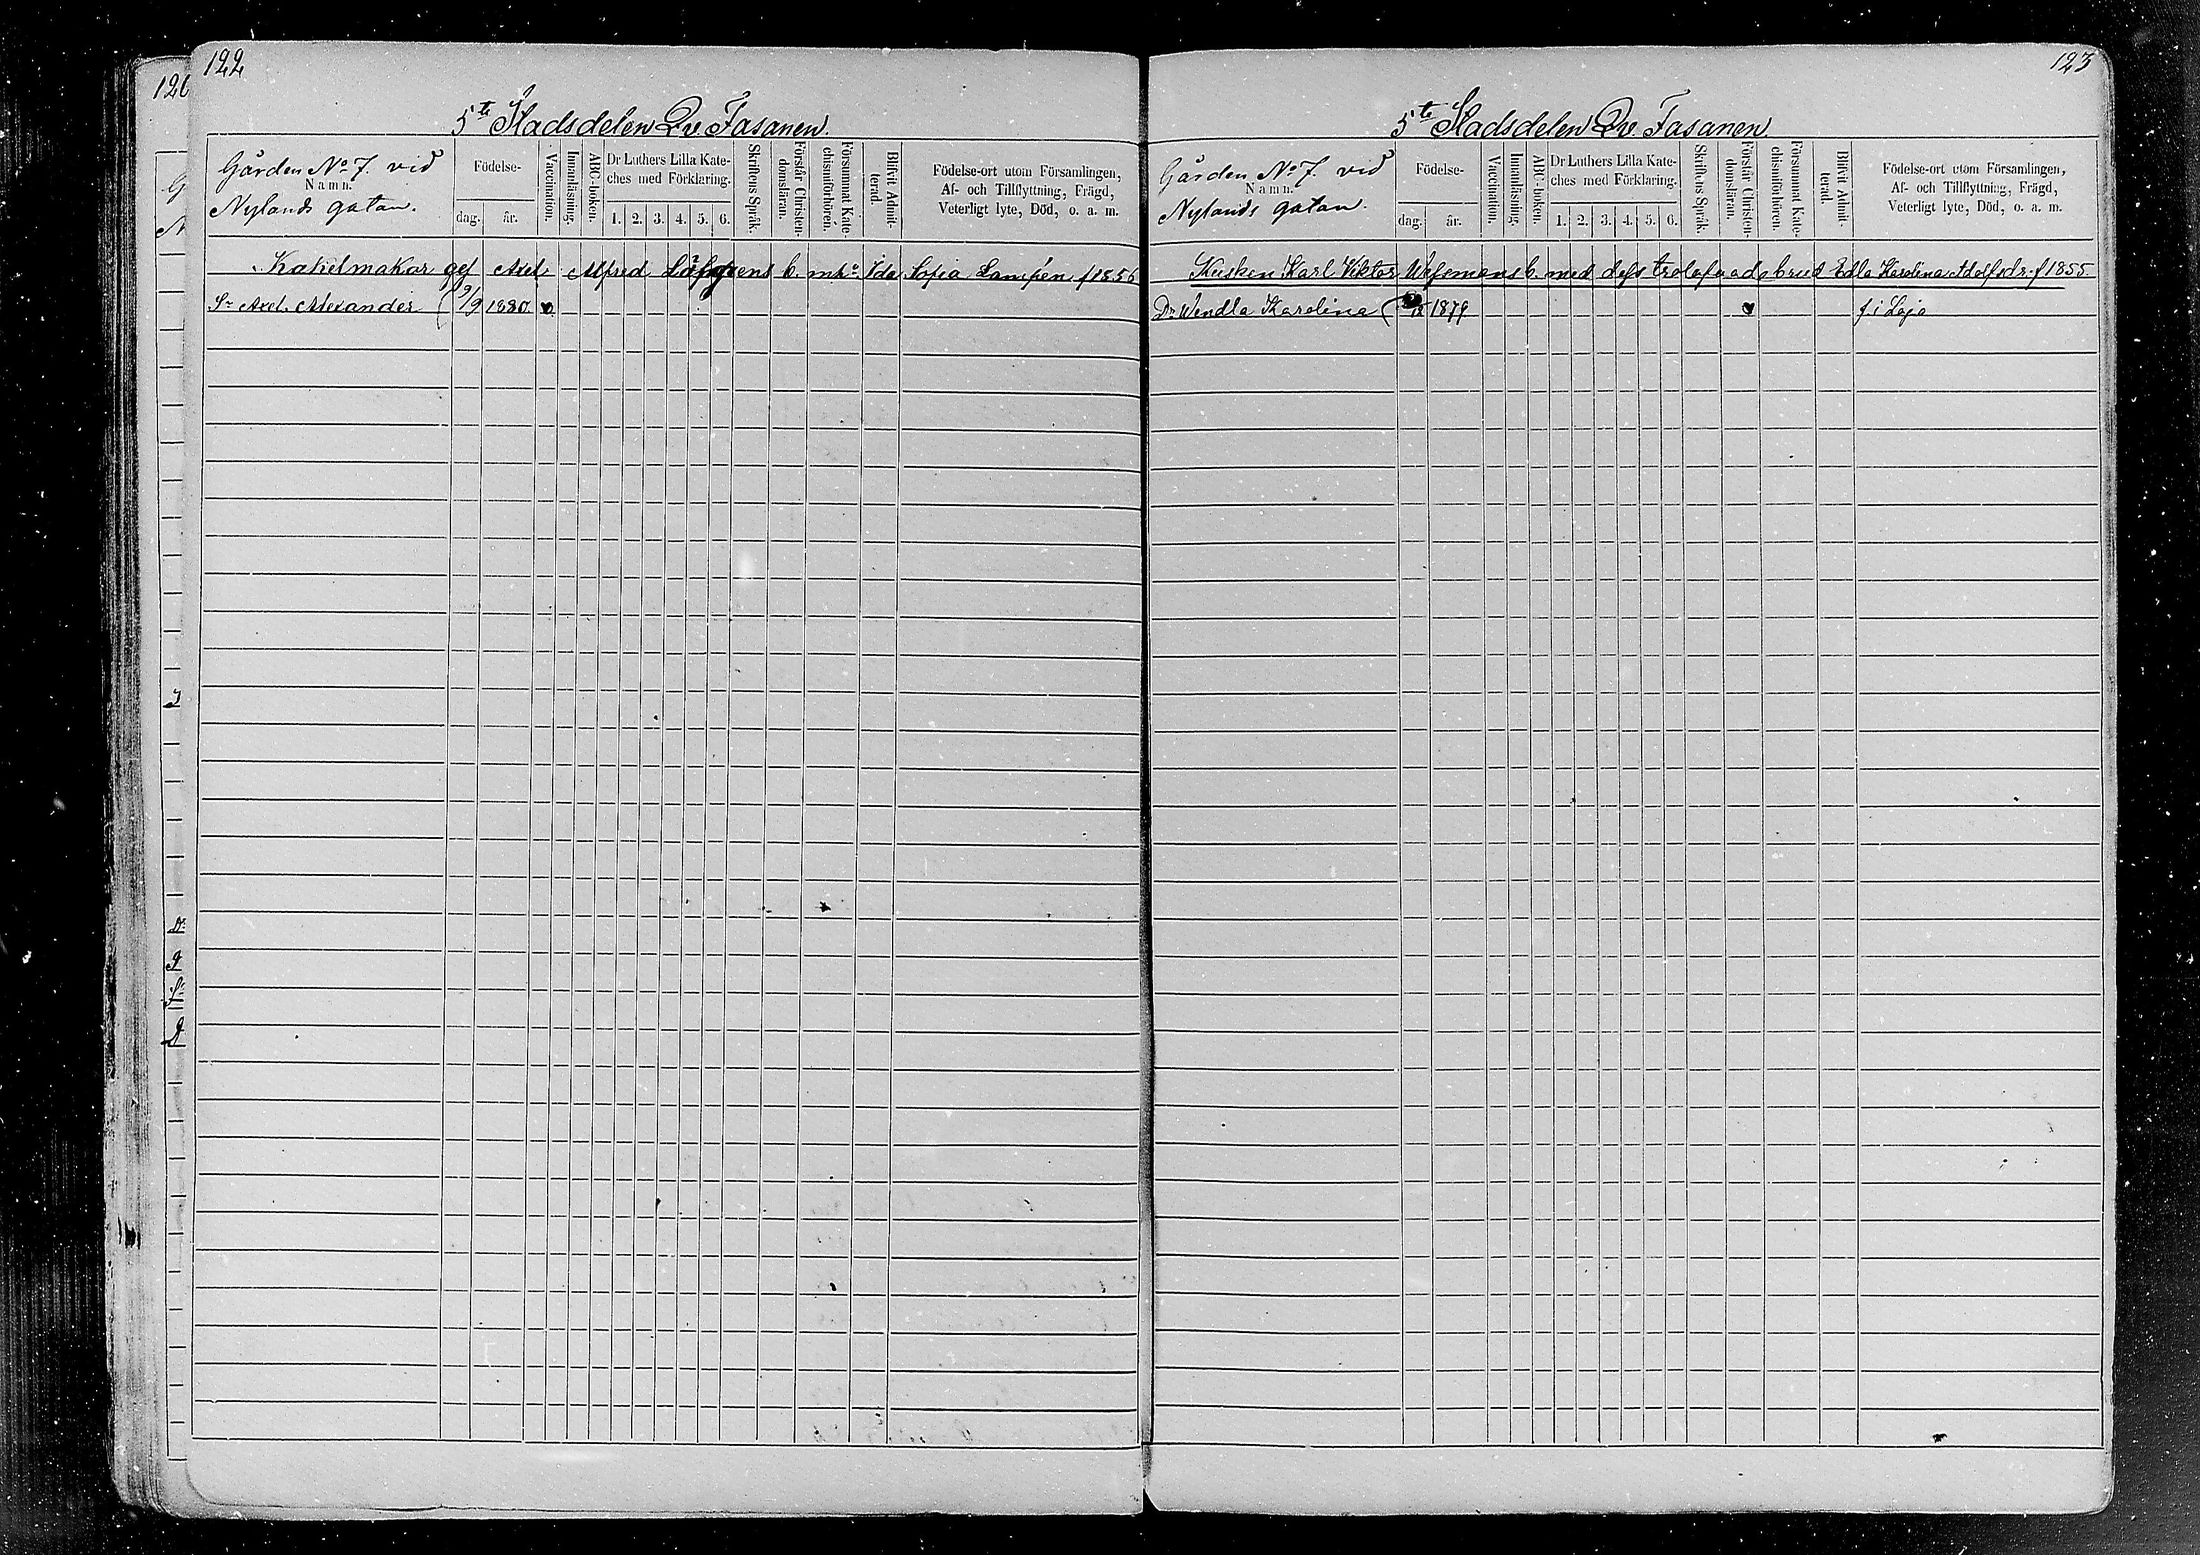 122
5te Stadsdelen Qv. Fasanen.
Gården No 7. vid
Namn.
Nylands gatan.
Födelse-
dag.
år.
Vaccination.
Innanläsning.
ABC-boken.
Dr Luthers Lilla Kate-
ches med Förklaring.
1. 2. 3. 4. 5. 6.
Skriftens Språk.
Förstår Christen-
domsläran.
Försummat Kate-
chismiförhören.
Blifvit Admit-
terad.
Födelse-ort utom Församlingen,
Af- och Tillflyttning, Frägd,
Veterligt lyte, Död, o. a. m.
Kakelmakar ges Axel Alfred Löfgrens b. m. h. Ida Sofia Lampén f 1856
Sr Axel Alexander 9/9 1880. v.
123
5te Stadsdelen Qv. Fasanen.
Gården No 7. vid
Namn.
Nylands gatan.
Födelse-
dag.
år.
Vaccination.
Innanläsning.
ABC-boken.
Dr Luthers Lilla Kate-
ches med Förklaring.
1. 2. 3. 4. 5. 6.
Skriftens Språk.
Förstår Christen-
domsläran.
Försummat Kate-
chismiförhören.
Blifvit Admit-
terad.
Födelse-ort utom Församlingen,
Af- och Tillflyttning, Frägd,
Veterligt lyte, Död, o. a. m.
Kusken Karl Viktor b. med dess trolofvade brud Edla Karolina Adolfsdr. f 1855.
Dr Wendla Karolina 1879 v f. i Lojo